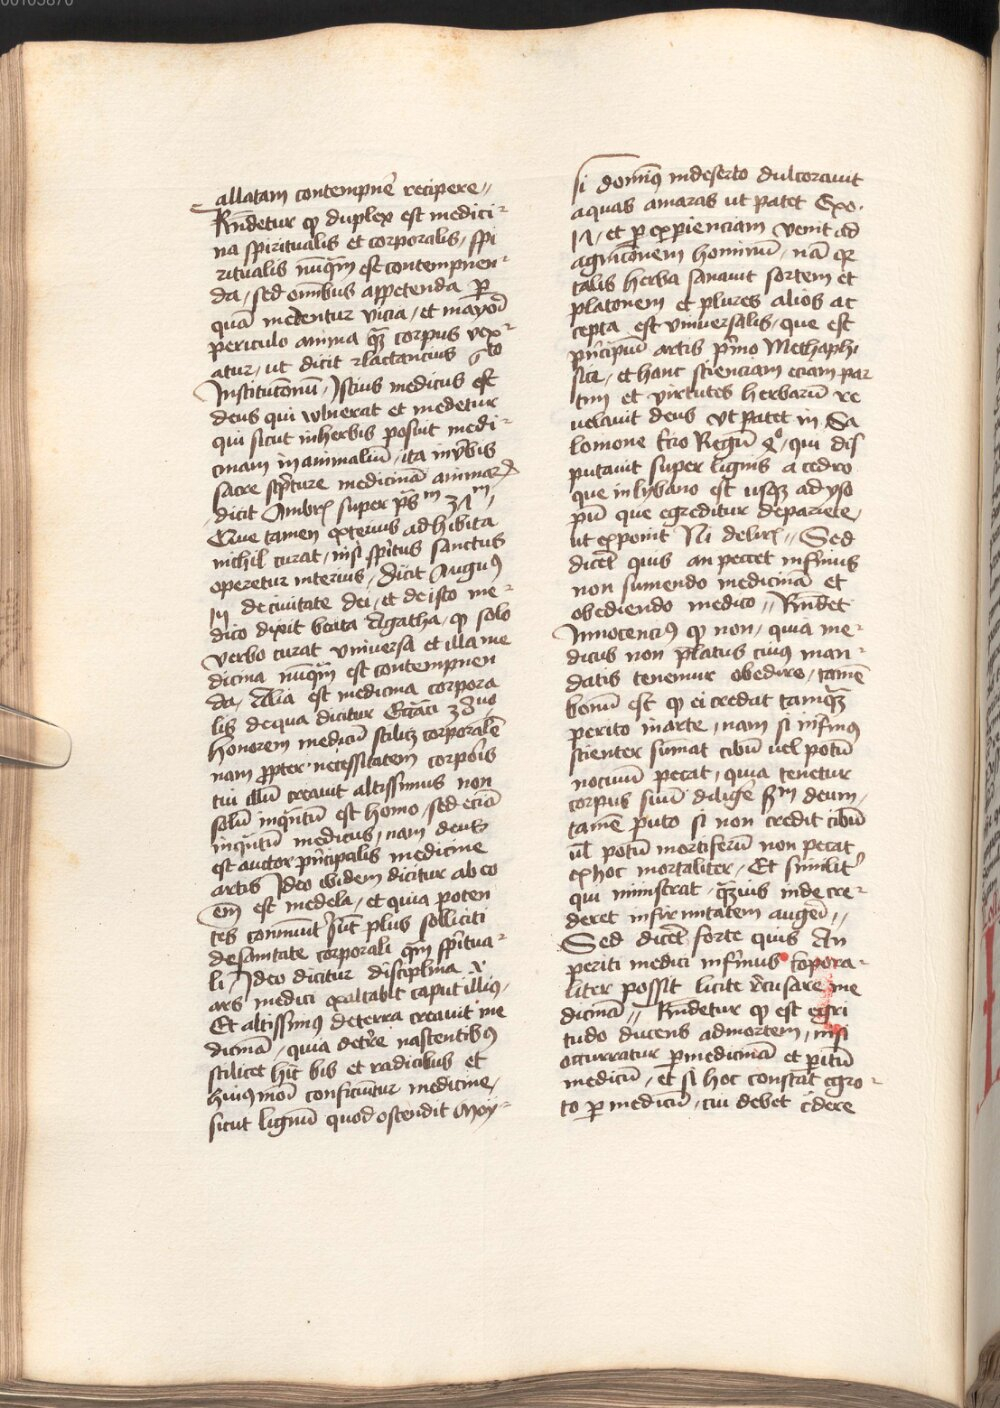 allatam contempnē recipere //
Rn̄detur ꝙ duplex est medici-
na spiritualis et corporalis / spi
ritualis nūqꝫm est contempnen-
da / sed om̄ibus appetenda ꝑ
quā medentur vicia / et maiori
periculo anima qꝫ corpus vex-
atur / ut dicit Lactancius 6to
Institucōnū / Istius medicus est
deus qui wlnerat et medetur
qui sicut in herbis posuit medi-
cinam in animaliū / ita in v̄bis
sacre sc̄pture medicinā animarꝝ
dicit Ambrꝭ super ps̄m 37m /
Que tamen exterius adhibita
nichil curat / nisi sp̄itus sanctus
operetur interius / dicit Augꝰ
de ciuitate dei / et de isto me-
dico dixit beata Agatha / ꝙ solo
verbo curat vniuersa et illa me
dicina nūqꝫm est contempnen
da / Alia est medicina corpora
lis de qua dicitur Ecc̄ci 38uo
honorem medicū scilicꝫ corporalē
nam ꝓpter necessitatem corporis
tui illū creauit altissimus non
solū inqꝫntū est homo / sed eciā
inqꝫntū medicus / nam deus
est auctor pn̄cipalis medicine
artis Ideo ibidem dicitur ab eo
em̄ est medela / et quia poten
tes cōmuniter sūt plus solliciti
de sanitate corporali qꝫm sp̄itua-
li / Ideo dicitur disciplina
ars medici exaltabit caput illiꝰ /
Et altissimꝰ de terra creauit me
dicinā / quia de tr̄e nascentibꝰ
scilicet h̄it bis et radicibus et
huiꝰmōi conficiūtur medicine /
sicut lignū quod ostendit Moy-
si domīꝰ in deserto dulcorauit
aquas amaras ut patet Exo.
et ꝑ exꝑienciam venit ad
agnicōnem hominū / nā qꝛ
talis herba sanauit sortem et
platonem et plures alios ac
cepta est vniuersalis / que est
pn̄cipiū artis pͥmo Methaphi
sice / et hanc scienciam eciam par
tim et virtutes herbarū re
uelauit deus vt patet in Sa
lomone tercio Regū 4o / qui dis
putauit super lignis a cedro
que in lybano est usqꝫ ad yso
pū que egreditur de pariete /
ut exponit Ni de lirꝭ // Sed
dicet quis an peccet infirmus
non sumendo medicinā et
obediendo medico // Rn̄det
Innocenciꝰ ꝙ non / quia me-
dicus non p̄latus cuiꝰ man-
datis tenemur obedire / tamē
bonū est ꝙ ei credat tamqꝫ
perito in arte / nam si infirmꝰ
scienter sumat cibū uel potū
nociuū peccat / quia tenetur
corpus suū diligē sm̄ deum /
tamē puto si non credit cibū
ul̄ potū mortiferū non peccat
ex hoc mortaliter / Et similitꝰ
qui ministrat / qꝫuis inde cre-
deret infirmitatem augēi //
Sed dicet forte quis An
periti medici infirmus copora-
liter possit licite recusare me
dicinā // Rn̄detur ꝙ est egri
tudo ducens ad mortem / nisi
occurratur ꝑ medicinā et ꝑitū
medicū / et si hoc constat egro-
to ꝑ medicū / cui debet credere